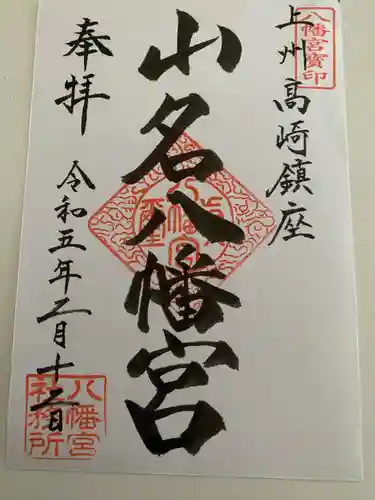 八幡宮寶印
上州高崎鎮座
山名八幡宮
奉拝
令和五年二月十二日
八幡宮
社務所